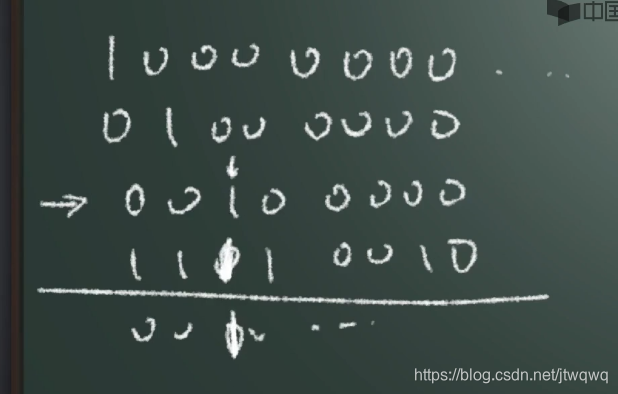 中国
1000 0000 . ...
0100 0000
↓
→ 0010 0000
11 1 0010
00
https://blog.csdn.net/jtwqwq